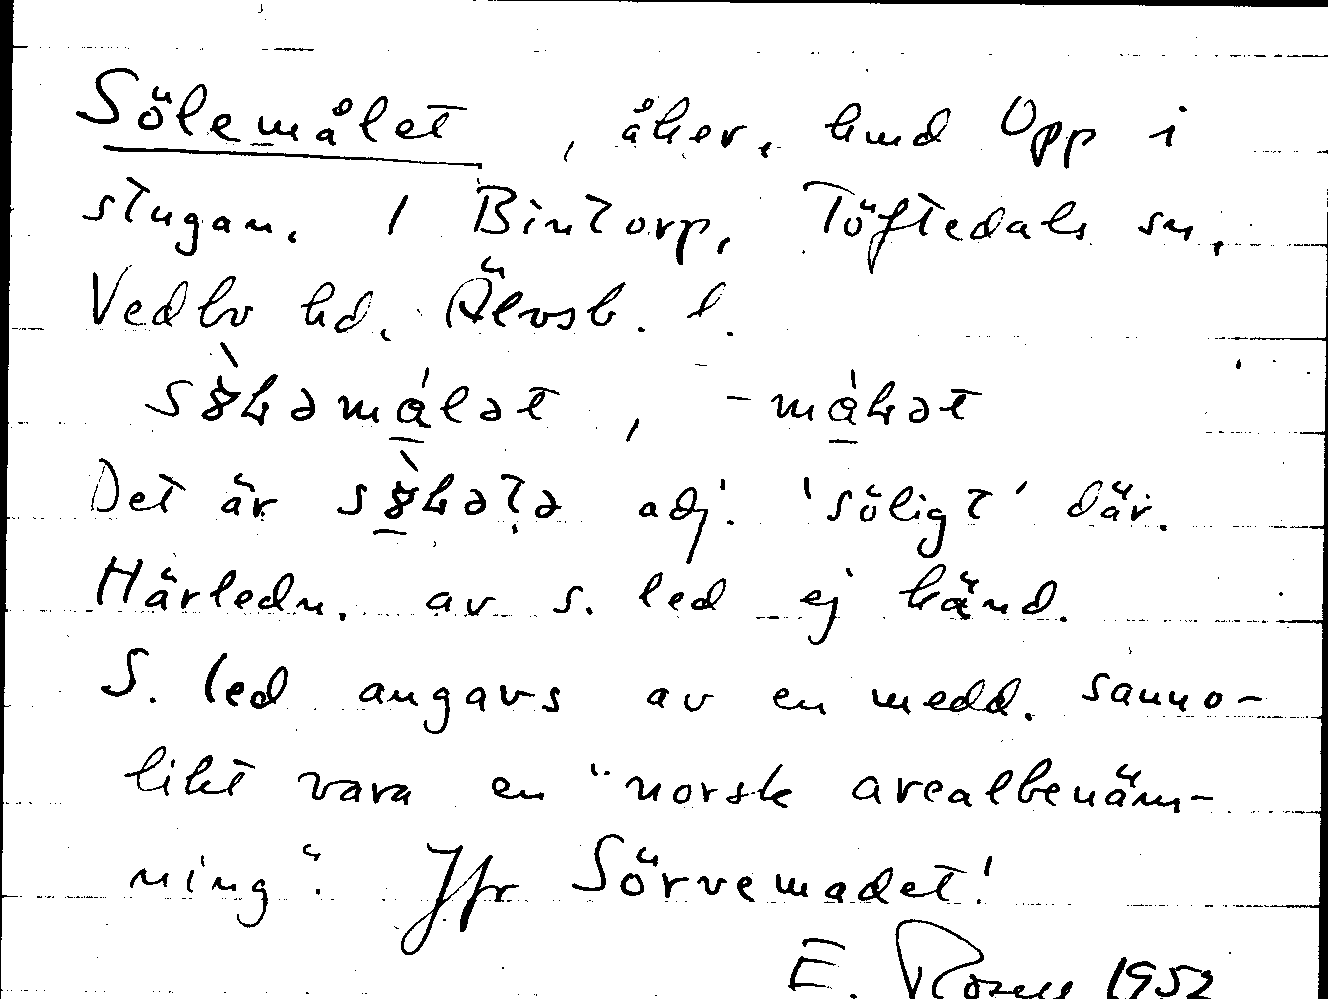 Sölemålet, åker, hmd Opp i
stugan. 1 Bintorp, Töftedals sn,
Vedbo hd. Älvsb. l.
Det är adj. 'söligt' där.
Härledn. av s. led ej känd.
S. led angavs av en medd. sanno-
likt vara en "norsk arealbenäm-
ning". Jfr Sörvemadet!
E. 1952